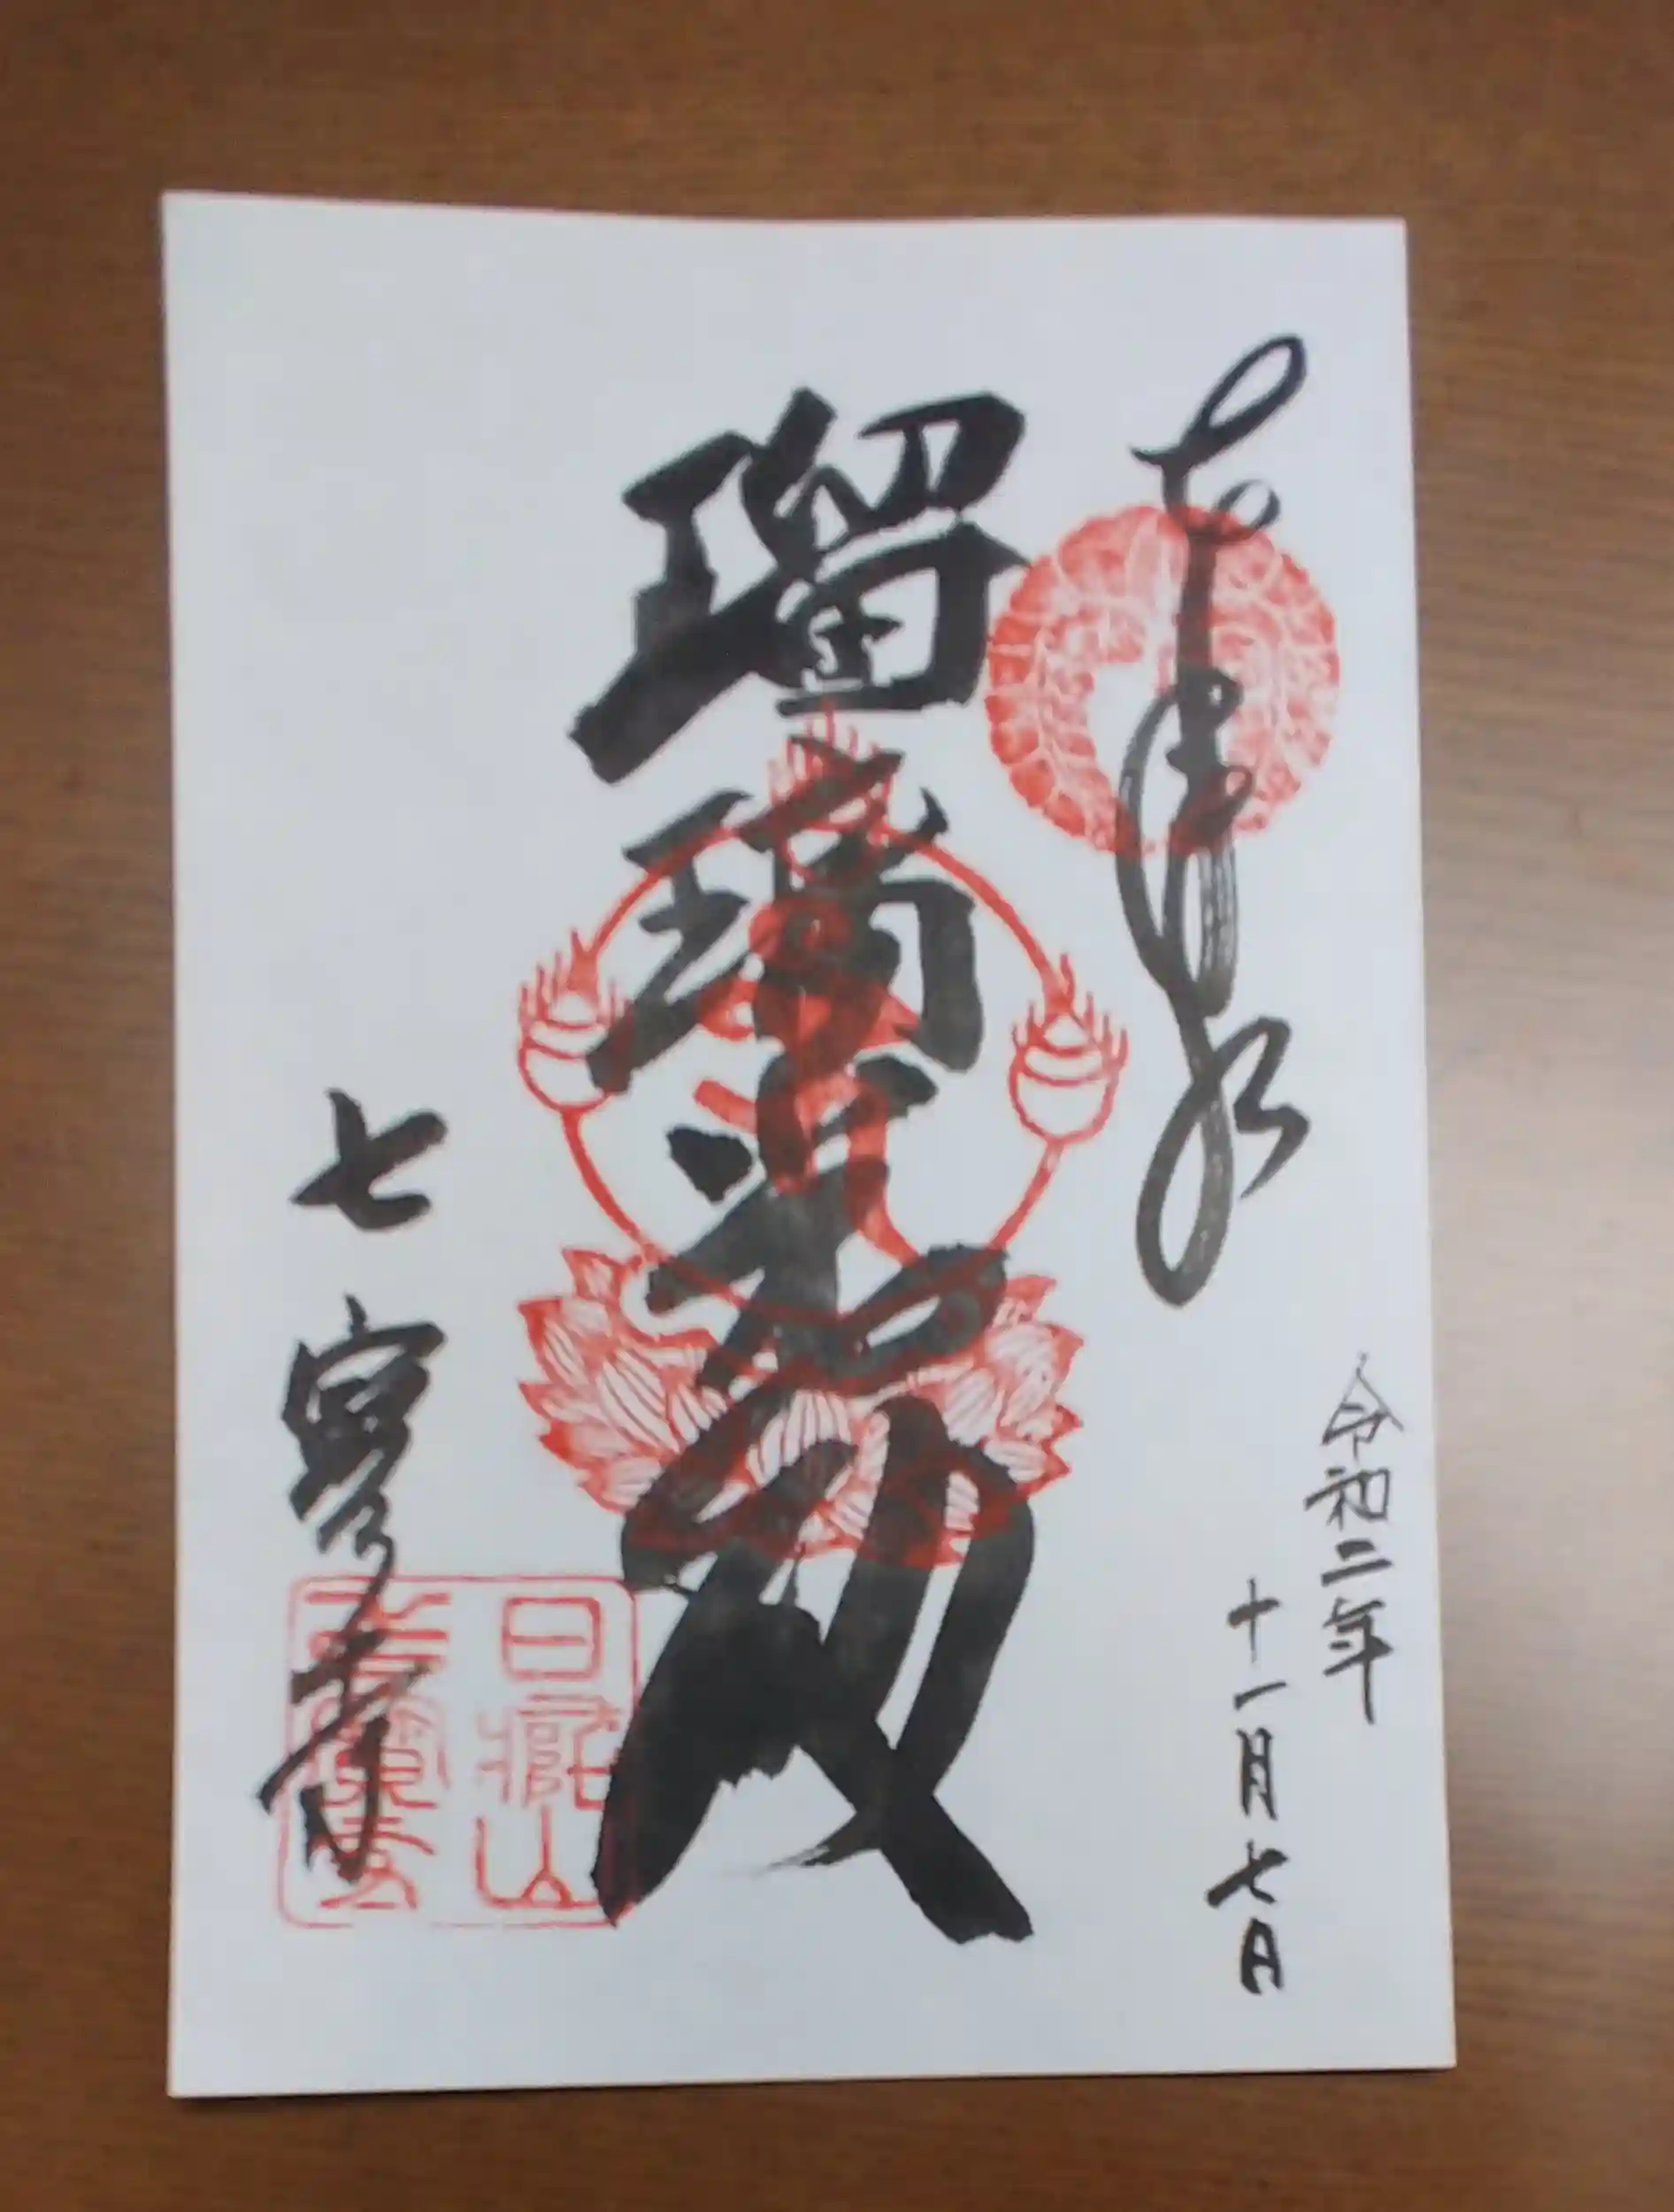 奉拝
令和二年
十一月七日
瑠璃光殿
七寳寺
日龍山
七寶寺